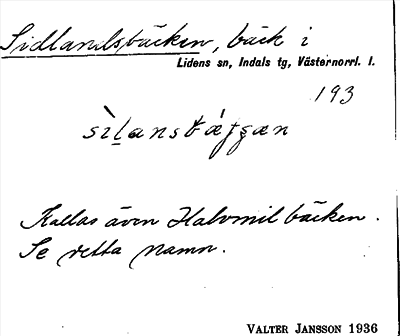 Sidlandsbäcken, bäck i
Lidens sn, Indals tg, Västernorrl. l.
193
Kallas även Halvmilbäcken.
Se detta namn.
VALTER JANSSON 1936